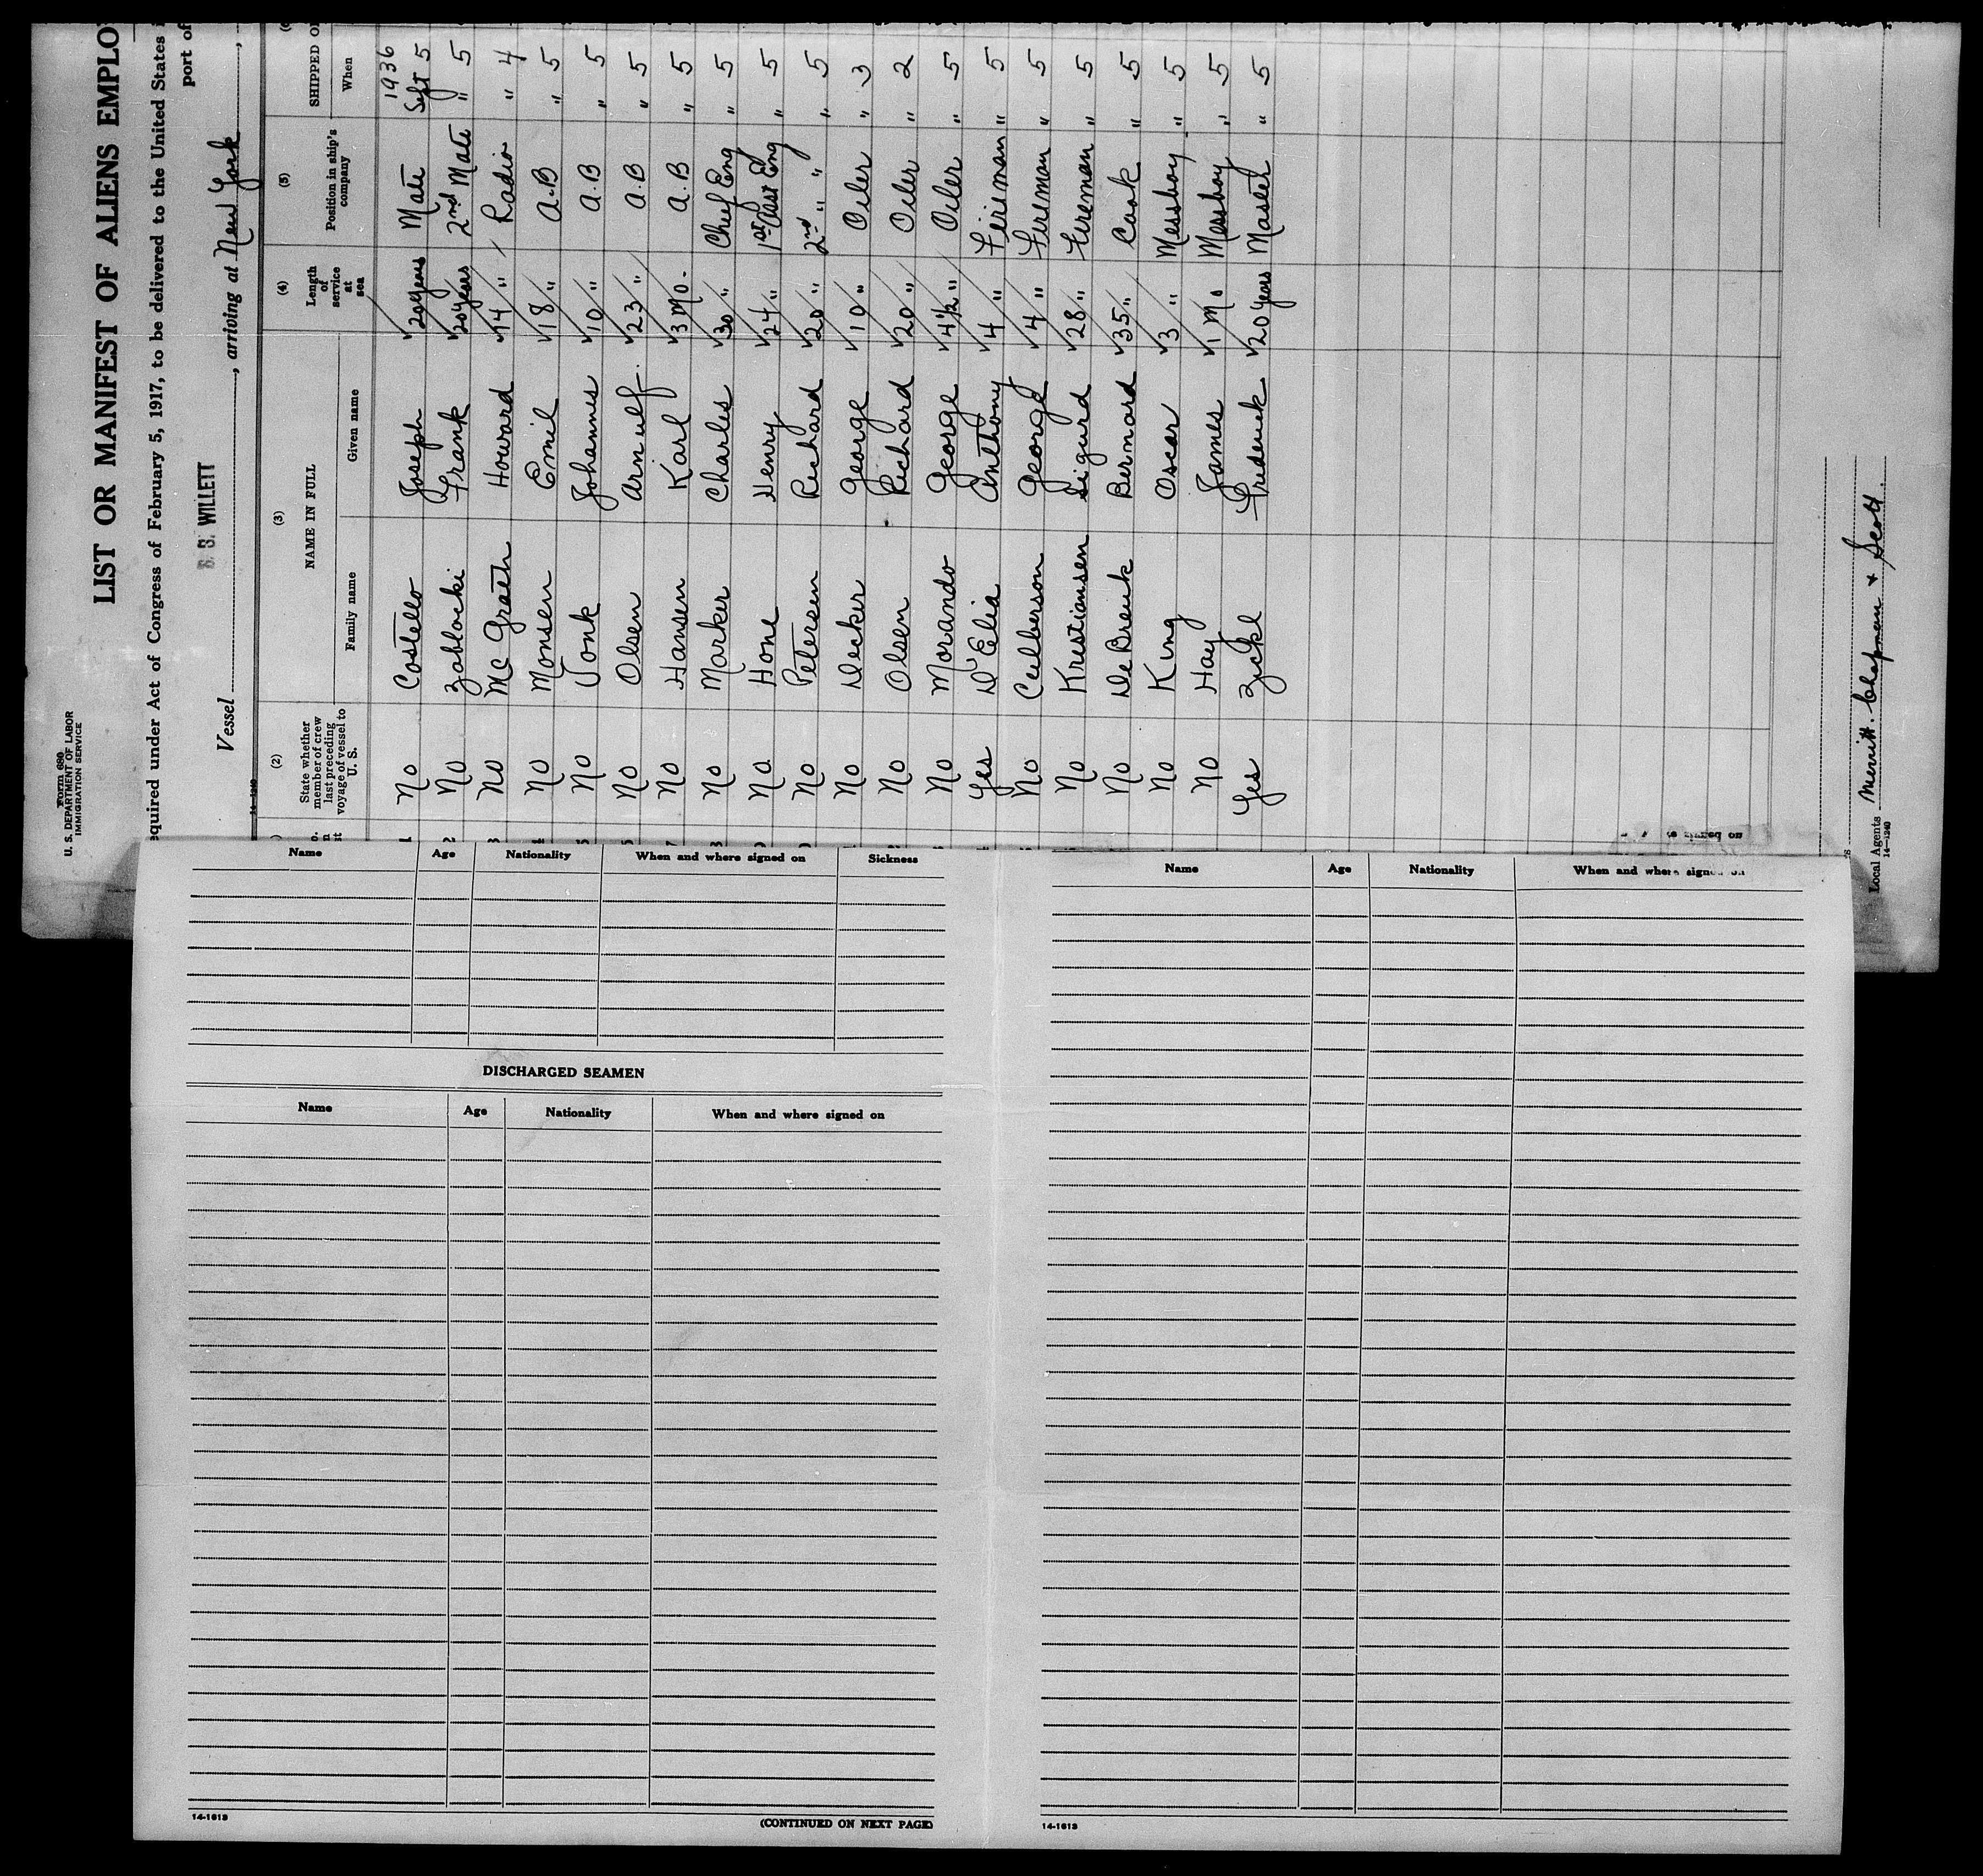 Form 680
U. S. DEPARTMENT OF LABOR
IMMIGRATION SERVICE
LIST OR MANIFEST OF ALIENS EMPLO
equired under Act of Congress of February 5, 1917, to be delivered to the United States i
port of
S. S. WILLETT
Vessel , arriving at New York ,
14—1240
(2) (3) (4) (5)
State whether member of crew last preceding voyage of vessel to U. S. NAME IN FULL Family name Given name Length of service at sea Position in ship's company SHIPPED O When
1936
1 No Costello Joseph 20 years Mate Sept 5
2 No Zablocki Frank 20 years 2nd Mate " 5
3 No Mc Grath Howard 14 " Radio " 4
No Monsen Emil 18 " A.B " 5
5 No Vonk Johannes 10 " A.B " 5
No Olsen Arnulf. 23 " A.B " 5
7 No Hansen Karl 3 Mo. A.B " 5
No Marker Charles 30 " Chief Eng " 5
No Hone Henry 24 " 1st Asst Eng " 5
No Petersen Richard 20 " 2nd " " " 5
No Decker George 10 " Oiler " 3
No Olsen Richard 20 " Oiler " 2
No Morando George 4½ " Oiler " 5
Yes D'Elia Anthony 4 " Fireman " 5
No Culberson George 4 " Fireman " 5
No Kristiansen Sigurd 28 " Fireman " 5
No De Breuk Bernard 35 " Cook " 5
No King Oscar 3 " Messboy " 5
No Hay James 1 Mo Messboy " 5
Yes Zickl Frederick 20 years Master " 5
Local Agents Merritt. Chapman & Scott.
14—1240
Name Age Nationality When and where signed on Sickness
DISCHARGED SEAMEN
Name Age Nationality When and where signed on
14-1613
(CONTINUED ON NEXT PAGE)
Name Age Nationality When and where signed on
14-1613